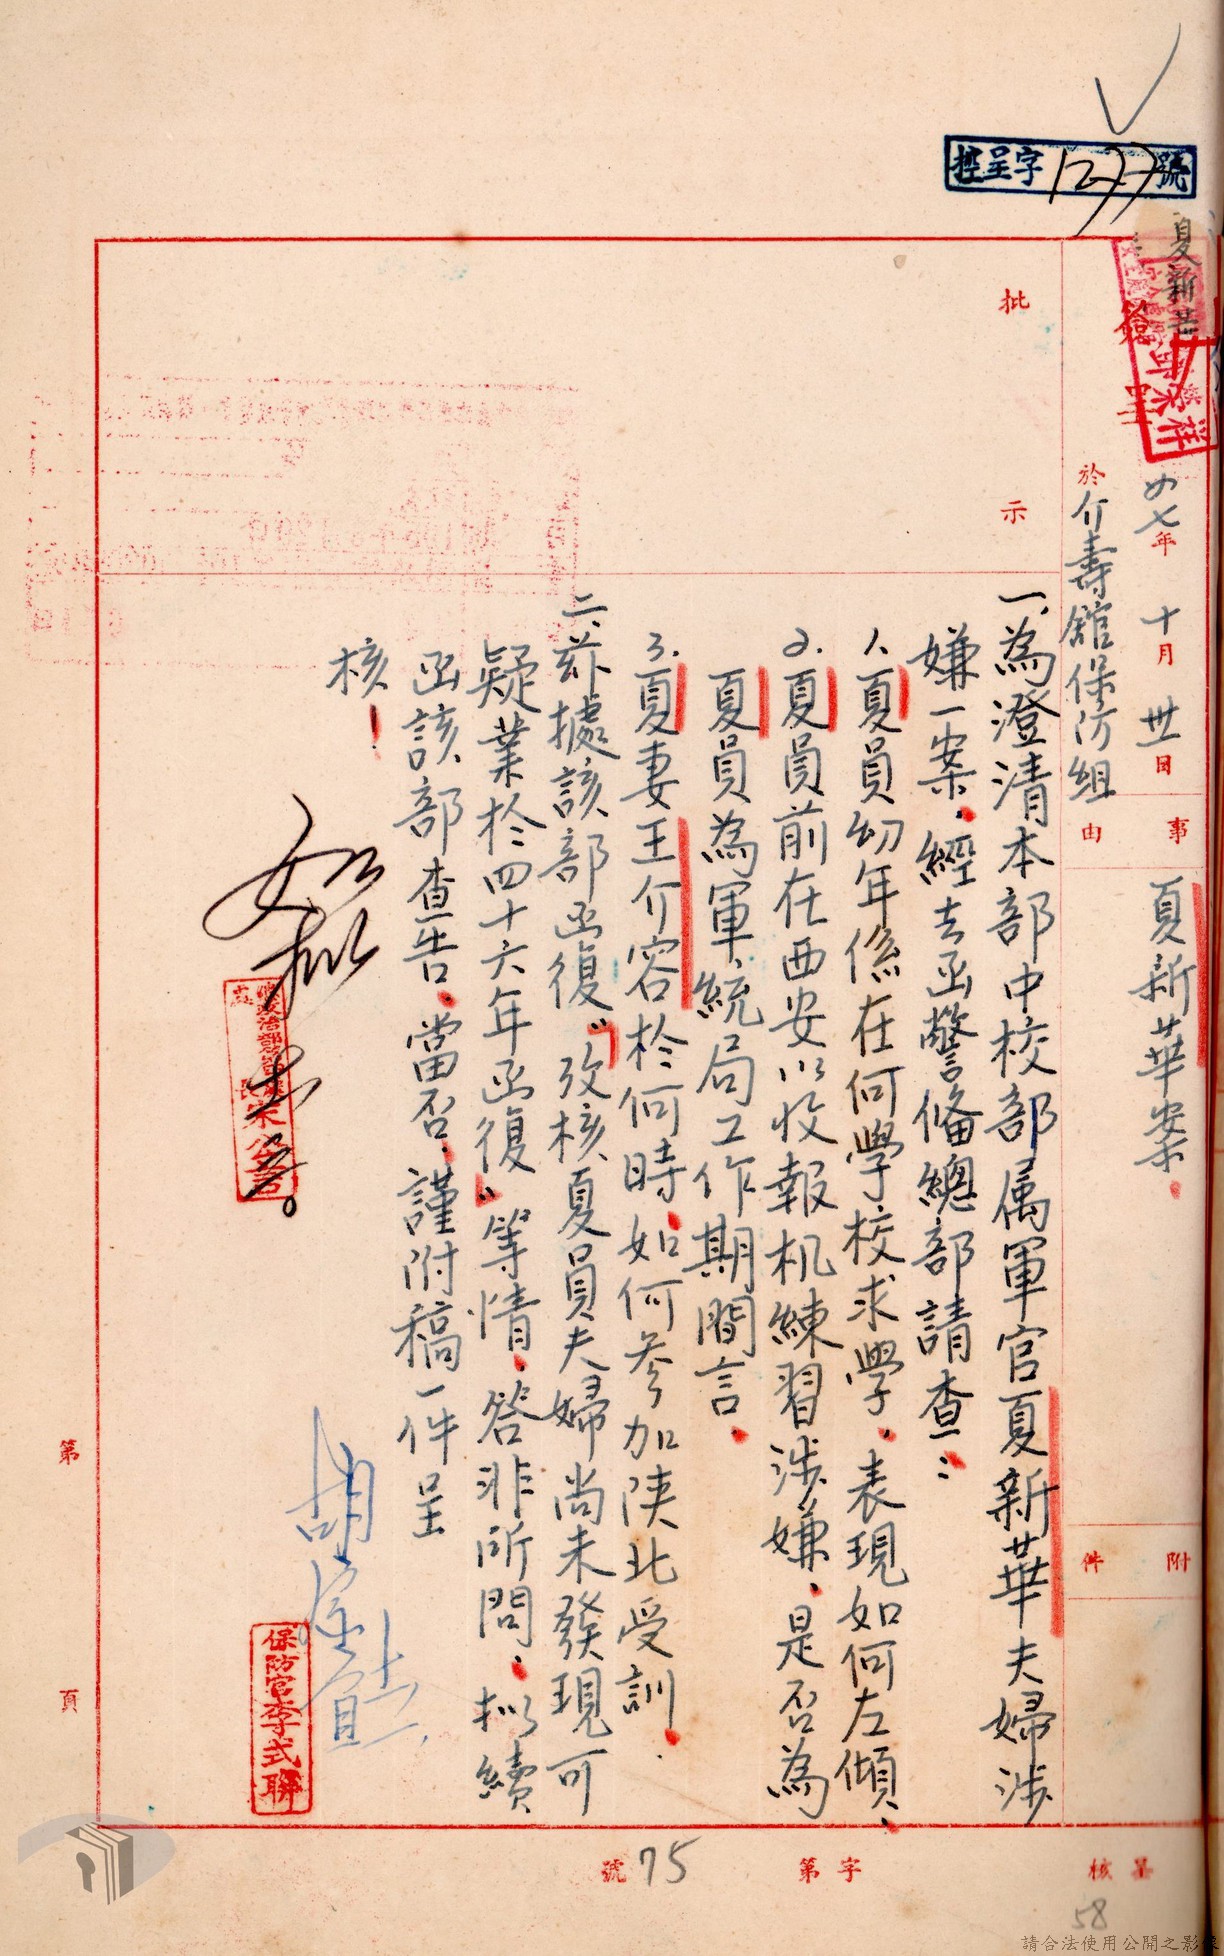 控呈字1277號
夏新華
簽呈
師榮祥
四七年十月卅日
於介壽館保防組
事由
夏新華案.
附件
批示
一、為澄清本部中校部属軍官夏新華夫婦涉
嫌一案,經去函警俻總部請查:
1、夏員幼年係在何學校求學,表現如何左傾、
2.夏員前在西安以收報机練習涉嫌,是否為
夏員為軍統局工作期間言.
3.夏妻王介容於何時,如何參加陝北受訓.
二、茲據該部函復"攷核夏員夫婦尚未發現可
疑業於四十六年函復"等情,答非所問,拟續
函該部查告,當否,謹附稿一件呈
核!
如拟
保防官李式聯
第 頁
呈核
字第75號
58
請合法使用公開之影像